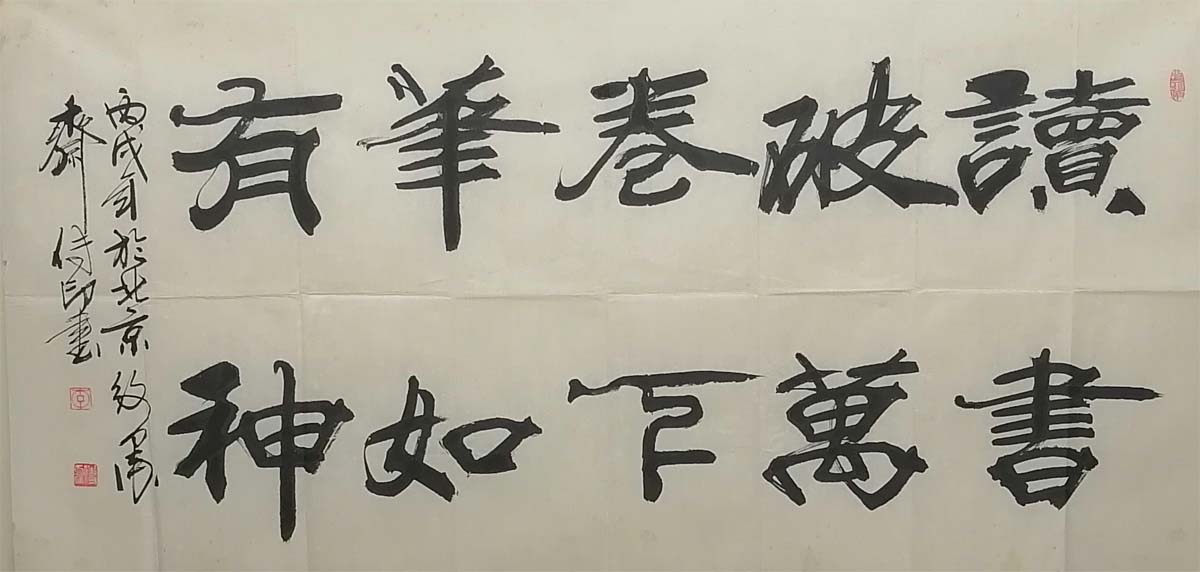 讀書
破萬
卷下
筆如
有神
丙戌年於北京墨
齋印書